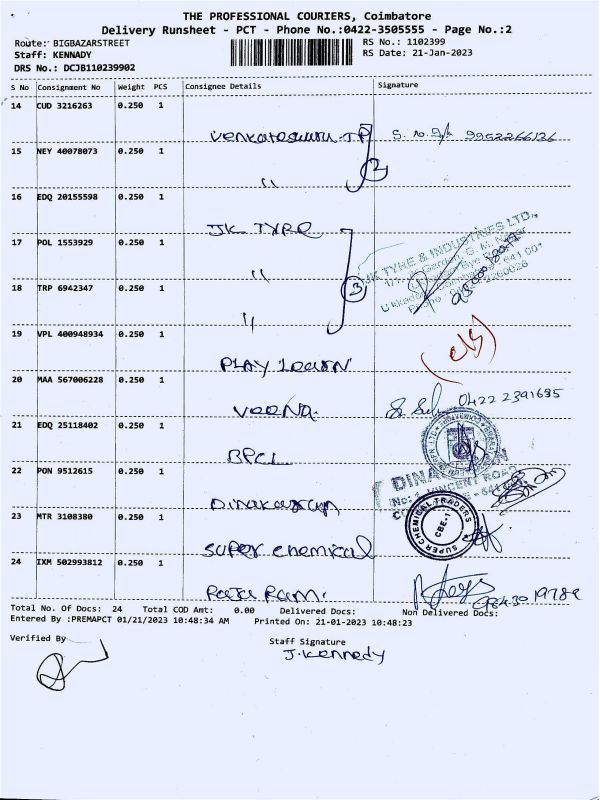 THE PROFESSIONAL COURIERS, Coimbatore
Delivery Runsheet - PCT - Phone No.:0422-3505555 - Page No.:2
Route: BIGBAZARSTREET
Staff: KENNADY
DRS No.: DCJB110239902
RS No.: 1102399
RS Date: 21-Jan-2023
S No Consignment No Weight PCS Consignee Details Signature
14 CUD 3216263 0.250 1
15 NEY 40078073 0.250 1 〃
2
16 EDQ 20155598 0.250 1 JK TYRE
17 POL 1553929 0.250 1 〃
JK TYRE & INDUSTRIES LTD.,
18 TRP 6942347 0.250 1 〃
3
19 VPL 400948934 0.250 1 PLAY Learn
20 MAA 567006228 0.250 1 Veena. 04222391685
21 EDQ 25118402 0.250 1 BPCL
22 PON 9512615 0.250 1 Dinakaran
VINCENT ROAD
23 MTR 3108380 0.250 1 Super chemical
SUPER CHEMICAL TRADERS
CBE-1
24 IXM 502993812 0.250 1 Raja Ram.
Total No. Of Docs: 24 Total COD Amt: 0.00 Delivered Docs: Non Delivered Docs:
Entered By :PREMAPCT 01/21/2023 10:48:34 AM Printed On: 21-01-2023 10:48:23
Verified By
Staff Signature
J.Kennedy